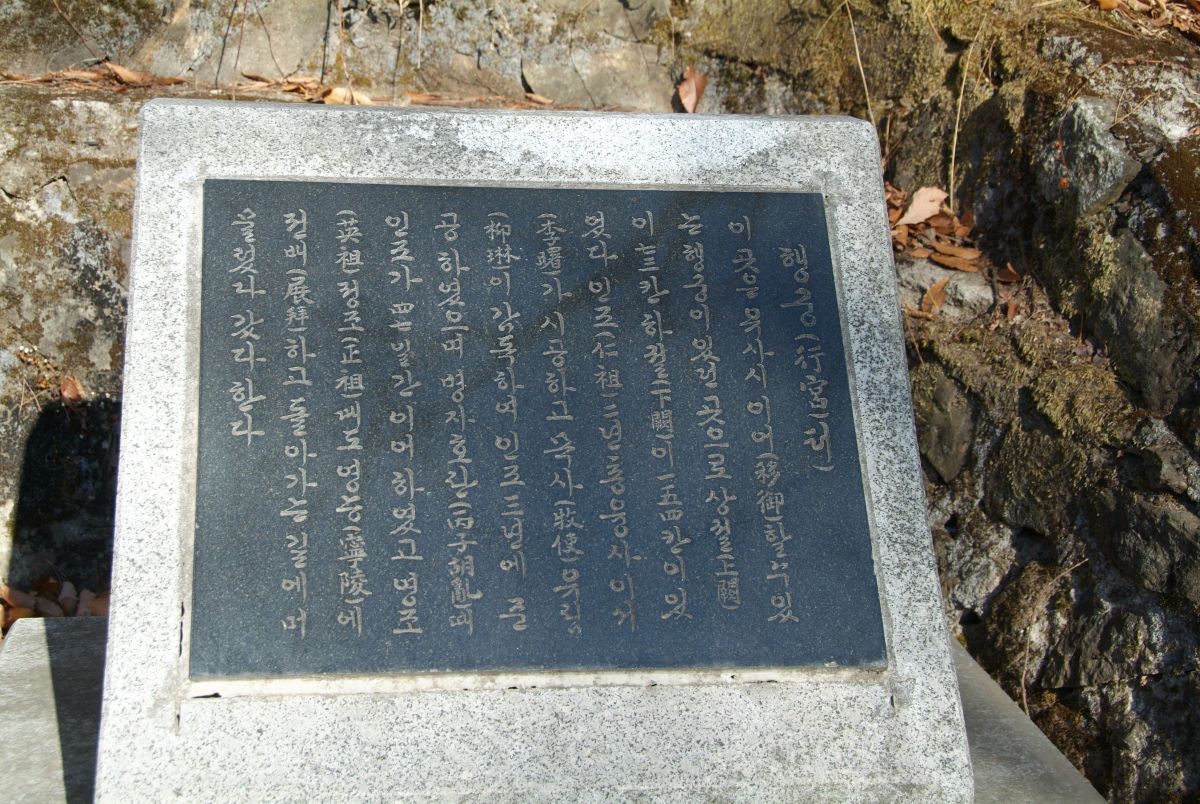 행궁(行宮터)
이 궁은 유사시 이어(移御)할 수 있
는 행궁이 있던 곳으로 상궐(上闕)
이 七三칸 하궐(下闕)이 一五四칸이 있
었다 인조(仁祖) 二년 총융사 이서
(李曙)가 시공하고 목사(牧使) 유림
(柳琳)이 감독하여 인조 三년에 준
공하였으며 병자호란(丙子胡亂)때
인조가 四七일간 이어하였고 영조
(英祖) 정조(正祖)때도 영능(寧陵)에
전배(展拜)하고 돌아가는 길에 머
물렀다 갔다 한다